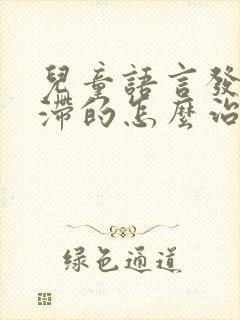 兒童語言發
滯的怎麼治
綠色通道